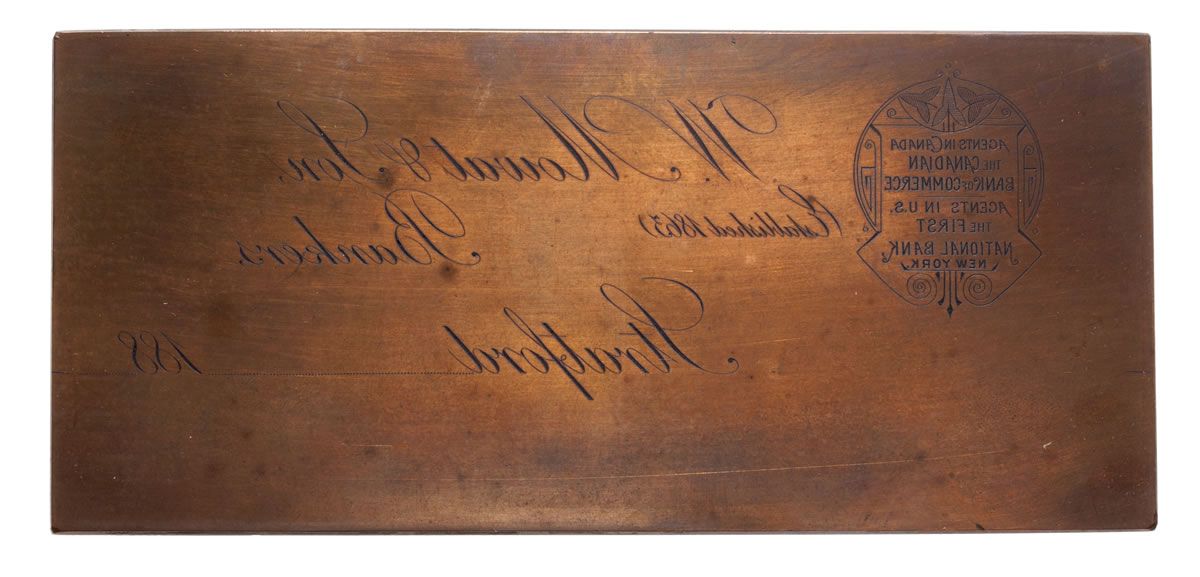 AGENTS IN CANADA
THE CANADIAN
BANK OF COMMERCE
AGENTS IN U.S.
THE FIRST
NATIONAL BANK,
NEW YORK.
W. Mowat & Son,
(Established 1863)
Bankers.
Stratford 188